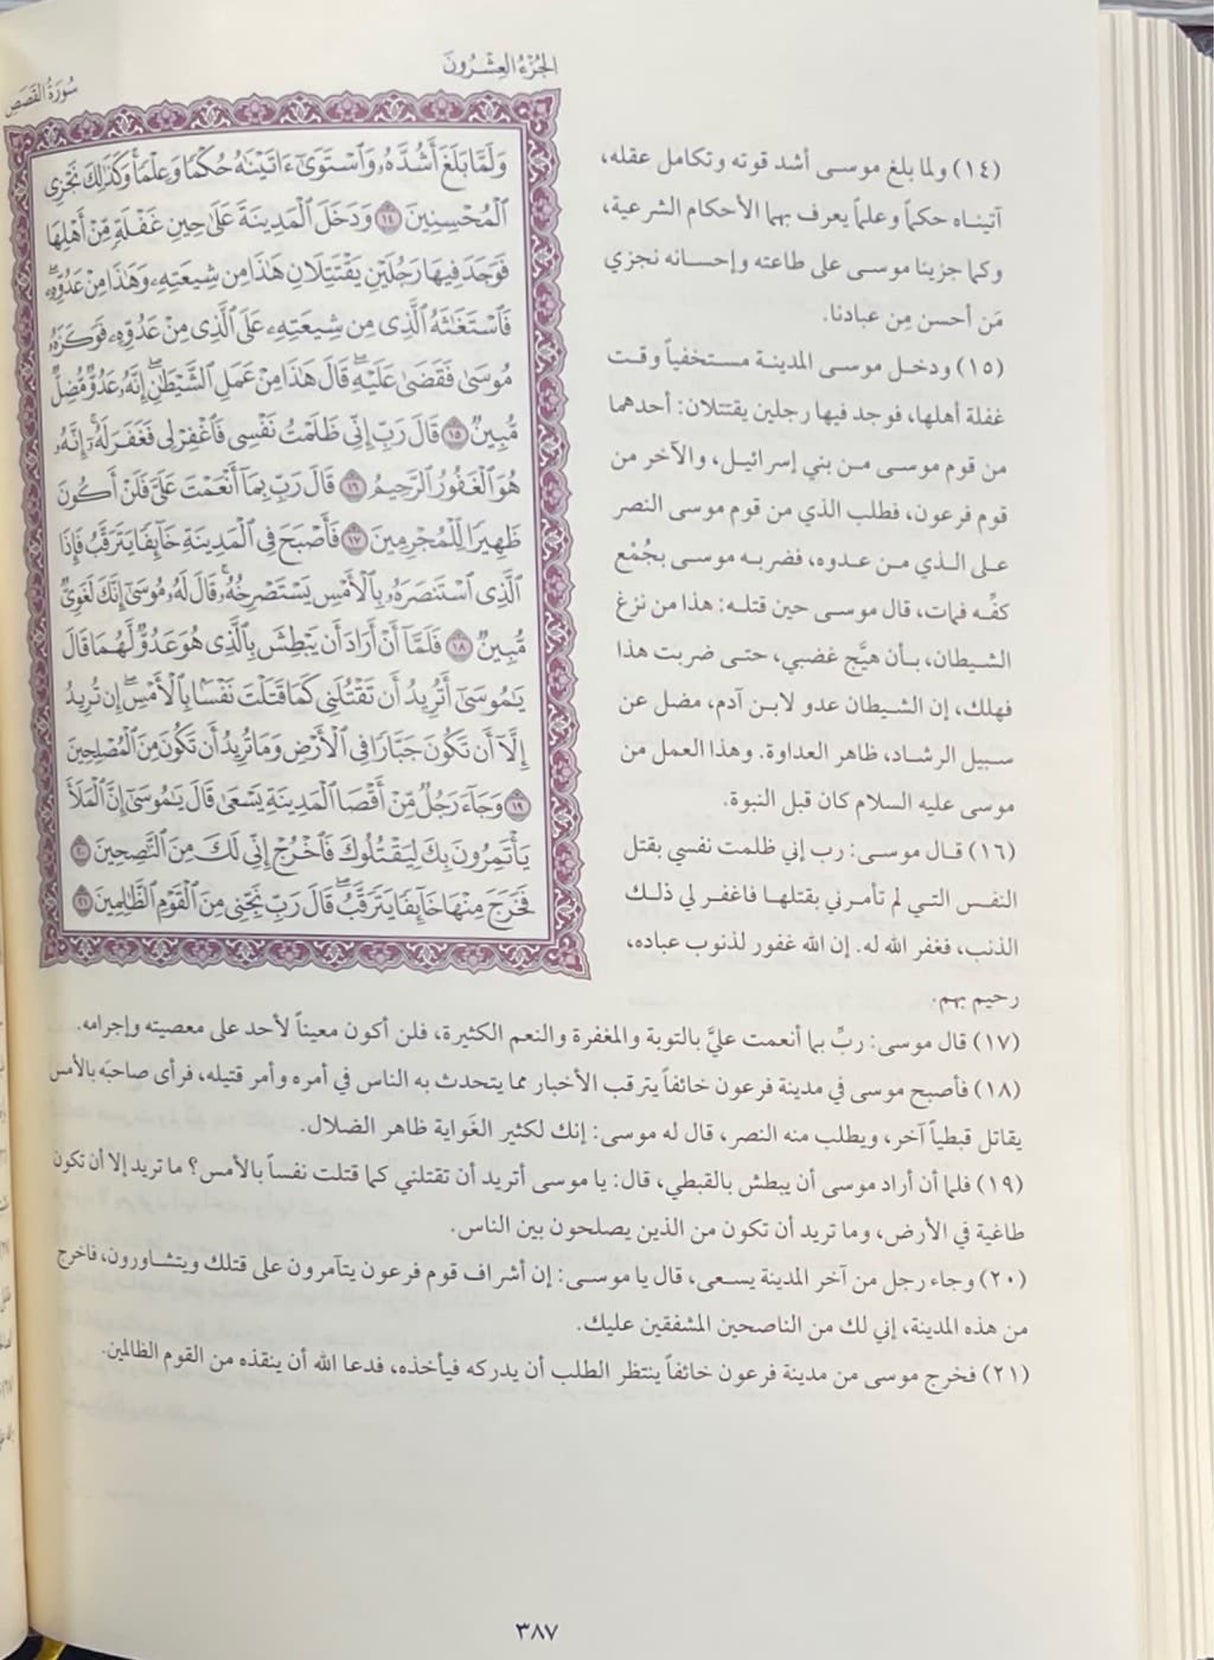 الجُزْءُ العِشْرُونَ
سُورَةُ القَصَصِ
وَلَمَّا بَلَغَ أَشُدَّهُۥ وَٱسْتَوَىٰٓ ءَاتَيْنَٰهُ حُكْمًا وَعِلْمًا ۚ وَكَذَٰلِكَ نَجْزِى
ٱلْمُحْسِنِينَ ١٤ وَدَخَلَ ٱلْمَدِينَةَ عَلَىٰ حِينِ غَفْلَةٍ مِّنْ أَهْلِهَا
فَوَجَدَ فِيهَا رَجُلَيْنِ يَقْتَتِلَانِ هَٰذَا مِن شِيعَتِهِۦ وَهَٰذَا مِنْ عَدُوِّهِۦ ۖ
فَٱسْتَغَٰثَهُ ٱلَّذِى مِن شِيعَتِهِۦ عَلَى ٱلَّذِى مِنْ عَدُوِّهِۦ فَوَكَزَهُۥ
مُوسَىٰ فَقَضَىٰ عَلَيْهِ ۖ قَالَ هَٰذَا مِنْ عَمَلِ ٱلشَّيْطَٰنِ ۖ إِنَّهُۥ عَدُوٌّ مُّضِلٌّ
مُّبِينٌ ١٥ قَالَ رَبِّ إِنِّى ظَلَمْتُ نَفْسِى فَٱغْفِرْ لِى فَغَفَرَ لَهُۥٓ ۚ إِنَّهُۥ
هُوَ ٱلْغَفُورُ ٱلرَّحِيمُ ١٦ قَالَ رَبِّ بِمَآ أَنْعَمْتَ عَلَىَّ فَلَنْ أَكُونَ
ظَهِيرًا لِّلْمُجْرِمِينَ ١٧ فَأَصْبَحَ فِى ٱلْمَدِينَةِ خَآئِفًا يَتَرَقَّبُ فَإِذَا
ٱلَّذِى ٱسْتَنصَرَهُۥ بِٱلْأَمْسِ يَسْتَصْرِخُهُۥ ۚ قَالَ لَهُۥ مُوسَىٰٓ إِنَّكَ لَغَوِىٌّ
مُّبِينٌ ١٨ فَلَمَّآ أَنْ أَرَادَ أَن يَبْطِشَ بِٱلَّذِى هُوَ عَدُوٌّ لَّهُمَا قَالَ
يَٰمُوسَىٰٓ أَتُرِيدُ أَن تَقْتُلَنِى كَمَا قَتَلْتَ نَفْسًۢا بِٱلْأَمْسِ ۖ إِن تُرِيدُ
إِلَّآ أَن تَكُونَ جَبَّارًا فِى ٱلْأَرْضِ وَمَا تُرِيدُ أَن تَكُونَ مِنَ ٱلْمُصْلِحِينَ
١٩ وَجَآءَ رَجُلٌ مِّنْ أَقْصَا ٱلْمَدِينَةِ يَسْعَىٰ قَالَ يَٰمُوسَىٰٓ إِنَّ ٱلْمَلَأَ
يَأْتَمِرُونَ بِكَ لِيَقْتُلُوكَ فَٱخْرُجْ إِنِّى لَكَ مِنَ ٱلنَّٰصِحِينَ ٢٠
فَخَرَجَ مِنْهَا خَآئِفًا يَتَرَقَّبُ ۖ قَالَ رَبِّ نَجِّنِى مِنَ ٱلْقَوْمِ ٱلظَّٰلِمِينَ ٢١
(١٤) ولما بلغ موسى أشد قوته وتكامل عقله،
آتيناه حكماً وعلماً يعرف بهما الأحكام الشرعية،
وكما جزينا موسى على طاعته وإحسانه نجزي
مَن أحسن مِن عبادنا.
(١٥) ودخل موسى المدينة مستخفياً وقت
غفلة أهلها، فوجد فيها رجلين يقتتلان: أحدهما
من قوم موسى من بني إسرائيل، والآخر من
قوم فرعون، فطلب الذي من قوم موسى النصر
على الذي من عدوه، فضربه موسى بجُمْع
كفِّه فمات، قال موسى حين قتله: هذا من نزغ
الشيطان، بأن هيَّج غضبي، حتى ضربت هذا
فهلك، إن الشيطان عدو لابن آدم، مضل عن
سبيل الرشاد، ظاهر العداوة. وهذا العمل من
موسى عليه السلام كان قبل النبوة.
(١٦) قال موسى: رب إني ظلمت نفسي بقتل
النفس التي لم تأمرني بقتلها فاغفر لي ذلك
الذنب، فغفر الله له. إن الله غفور لذنوب عباده،
رحيم بهم.
(١٧) قال موسى: ربِّ بما أنعمت عليَّ بالتوبة والمغفرة والنعم الكثيرة، فلن أكون معيناً لأحد على معصيته وإجرامه.
(١٨) فأصبح موسى في مدينة فرعون خائفاً يترقب الأخبار مما يتحدث به الناس في أمره وأمر قتيله، فرأى صاحبَه بالأمس
يقاتل قبطياً آخر، ويطلب منه النصر، قال له موسى: إنك لكثير الغَواية ظاهر الضلال.
(١٩) فلما أن أراد موسى أن يبطش بالقبطي، قال: يا موسى أتريد أن تقتلني كما قتلت نفساً بالأمس؟ ما تريد إلا أن تكون
طاغية في الأرض، وما تريد أن تكون من الذين يصلحون بين الناس.
(٢٠) وجاء رجل من آخر المدينة يسعى، قال يا موسى: إن أشراف قوم فرعون يتآمرون على قتلك ويتشاورون، فاخرج
من هذه المدينة، إني لك من الناصحين المشفقين عليك.
(٢١) فخرج موسى من مدينة فرعون خائفاً ينتظر الطلب أن يدركه فيأخذه، فدعا الله أن ينقذه من القوم الظالمين.
٣٨٧